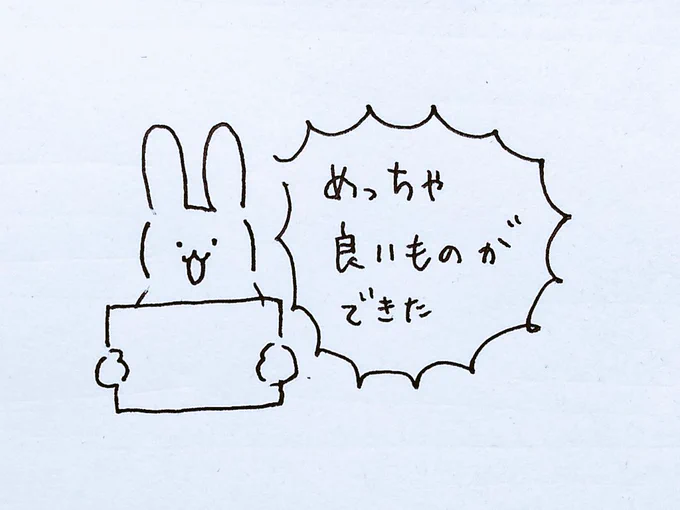 めっちゃ
良いものが
できた